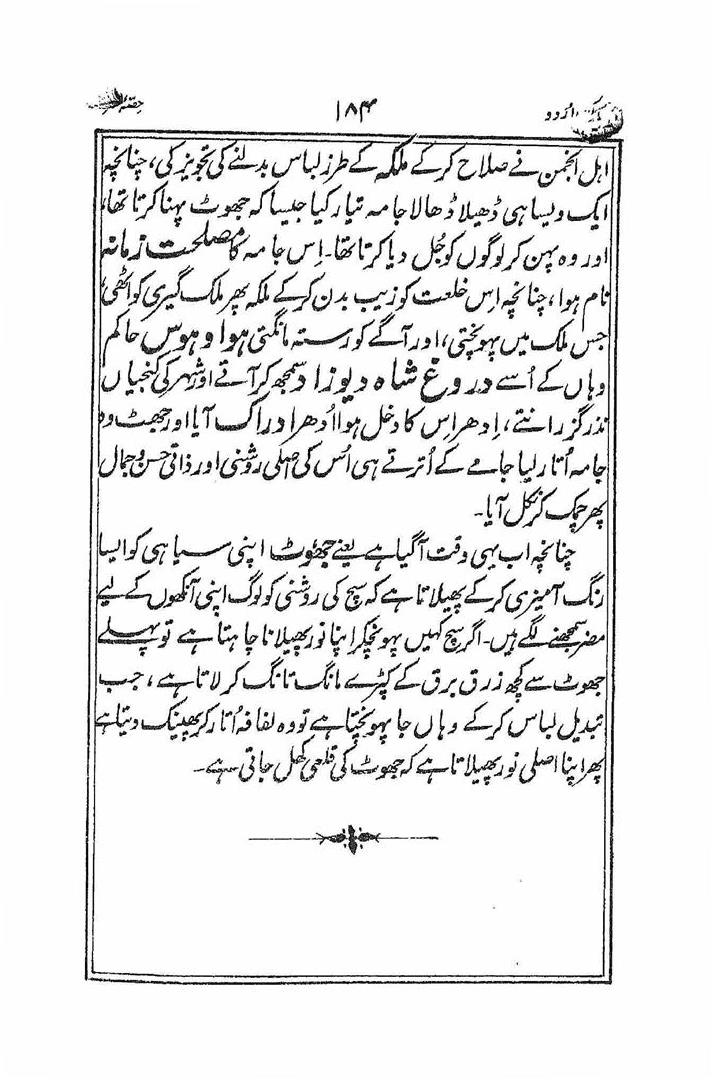 اردو ۱۸۴ حصہ
اہل انجمن نے صلاح کرکے ملکہ کے طرز لباس بدلنے کی تجویز کی، چنانچہ
ایک ویسا ہی ڈھیلا ڈھالا جامہ تیار کیا جیسا کہ جھوٹ پہنا کرتا تھا،
اور وہ پہن کر لوگوں کو جُل دیا کرتا تھا۔ اِس جامہ کا مصلحت زمانہ
نام ہوا، چنانچہ اِس خلعت کو زیب بدن کرکے ملکہ پھر ملک گیری کو اٹھی،
جس ملک میں پہونچتی، اور آگے کو رستہ مانگتی ہوا و ہوس حاکم
وہاں کے اُسے دروغ شاہ دیوزاد سمجھ کر آتے اور شہر کی کنجیاں
نذر گزرانتے، اِدھر اِس کا دخل ہوا اُدھر ادراک آیا اور جھٹ وہ
جامہ اُتار لیا جامے کے اُترتے ہی اُس کی اصلی روشنی اور ذاتی حسن و جمال
پھر چمک کر نکل آیا۔
چنانچہ اب یہی وقت آگیا ہے یعنے جھوٹ اپنی سیاہی کو ایسا
رنگ آمیزی کرکے پھیلاتا ہے کہ سچ کی روشنی کو لوگ اپنی آنکھوں کے لیے
مضر سمجھنے لگے ہیں۔ اگر سچ کہیں پہونچکر اپنا نور پھیلانا چاہتا ہے تو پہلے
جھوٹ سے کچھ زرق برق کے کپڑے مانگ تانگ کر لاتا ہے، جب
تبدیل لباس کرکے وہاں جا پہونچتا ہے تو وہ لفافہ اُتار کر پھینک دیتا ہے
پھر اپنا اصلی نور پھیلاتا ہے کہ جھوٹ کی قلعی کھل جاتی ہے۔